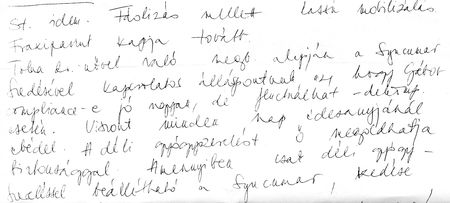 St. idem. Fáslizás mellett lassú mobilizálás
Fraxiparint kapja tovább.
Tolna dr. nővel való megb. alapján a Syncumar
szedésével kapcsolatos álláspontunk az, hogy Gábor
compliance-e jó napjai, de
esetén. Viszont minden nap édesanyjánál
ebédel. A déli gyógyszerelést ő megoldhatja
biztonsággal. Amennyiben csak déli gyógy-
szereléssel beállítható a Syncumar, szedése